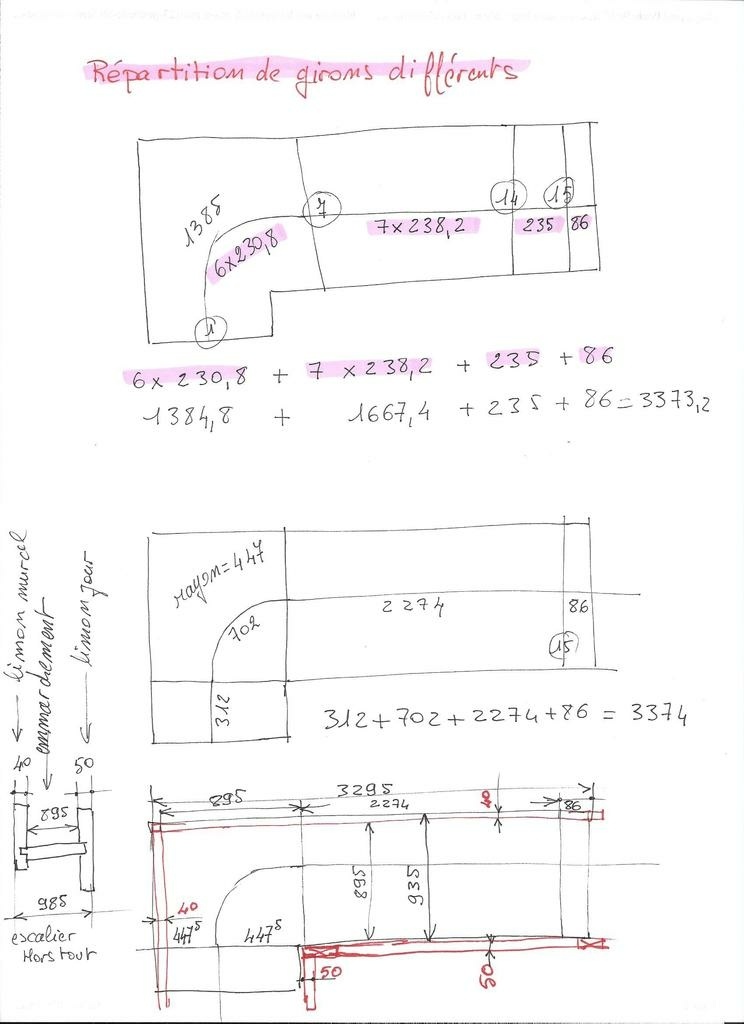 Répartition de girons différents
1385
6x230,8
7
7x238,2
14
15
235
86
1
6 x 230,8 + 7 x 238,2 + 235 + 86
1384,8 + 1667,4 + 235 + 86 = 3373,2
rayon = 447
702
312
2274
86
15
312 + 702 + 2274 + 86 = 3374
limon mural
emmarchement
limon jour
40
50
895
985
escalier
Hors tout
3295
895
2274
86
40
895
935
40
447⁵
447⁵
50
50